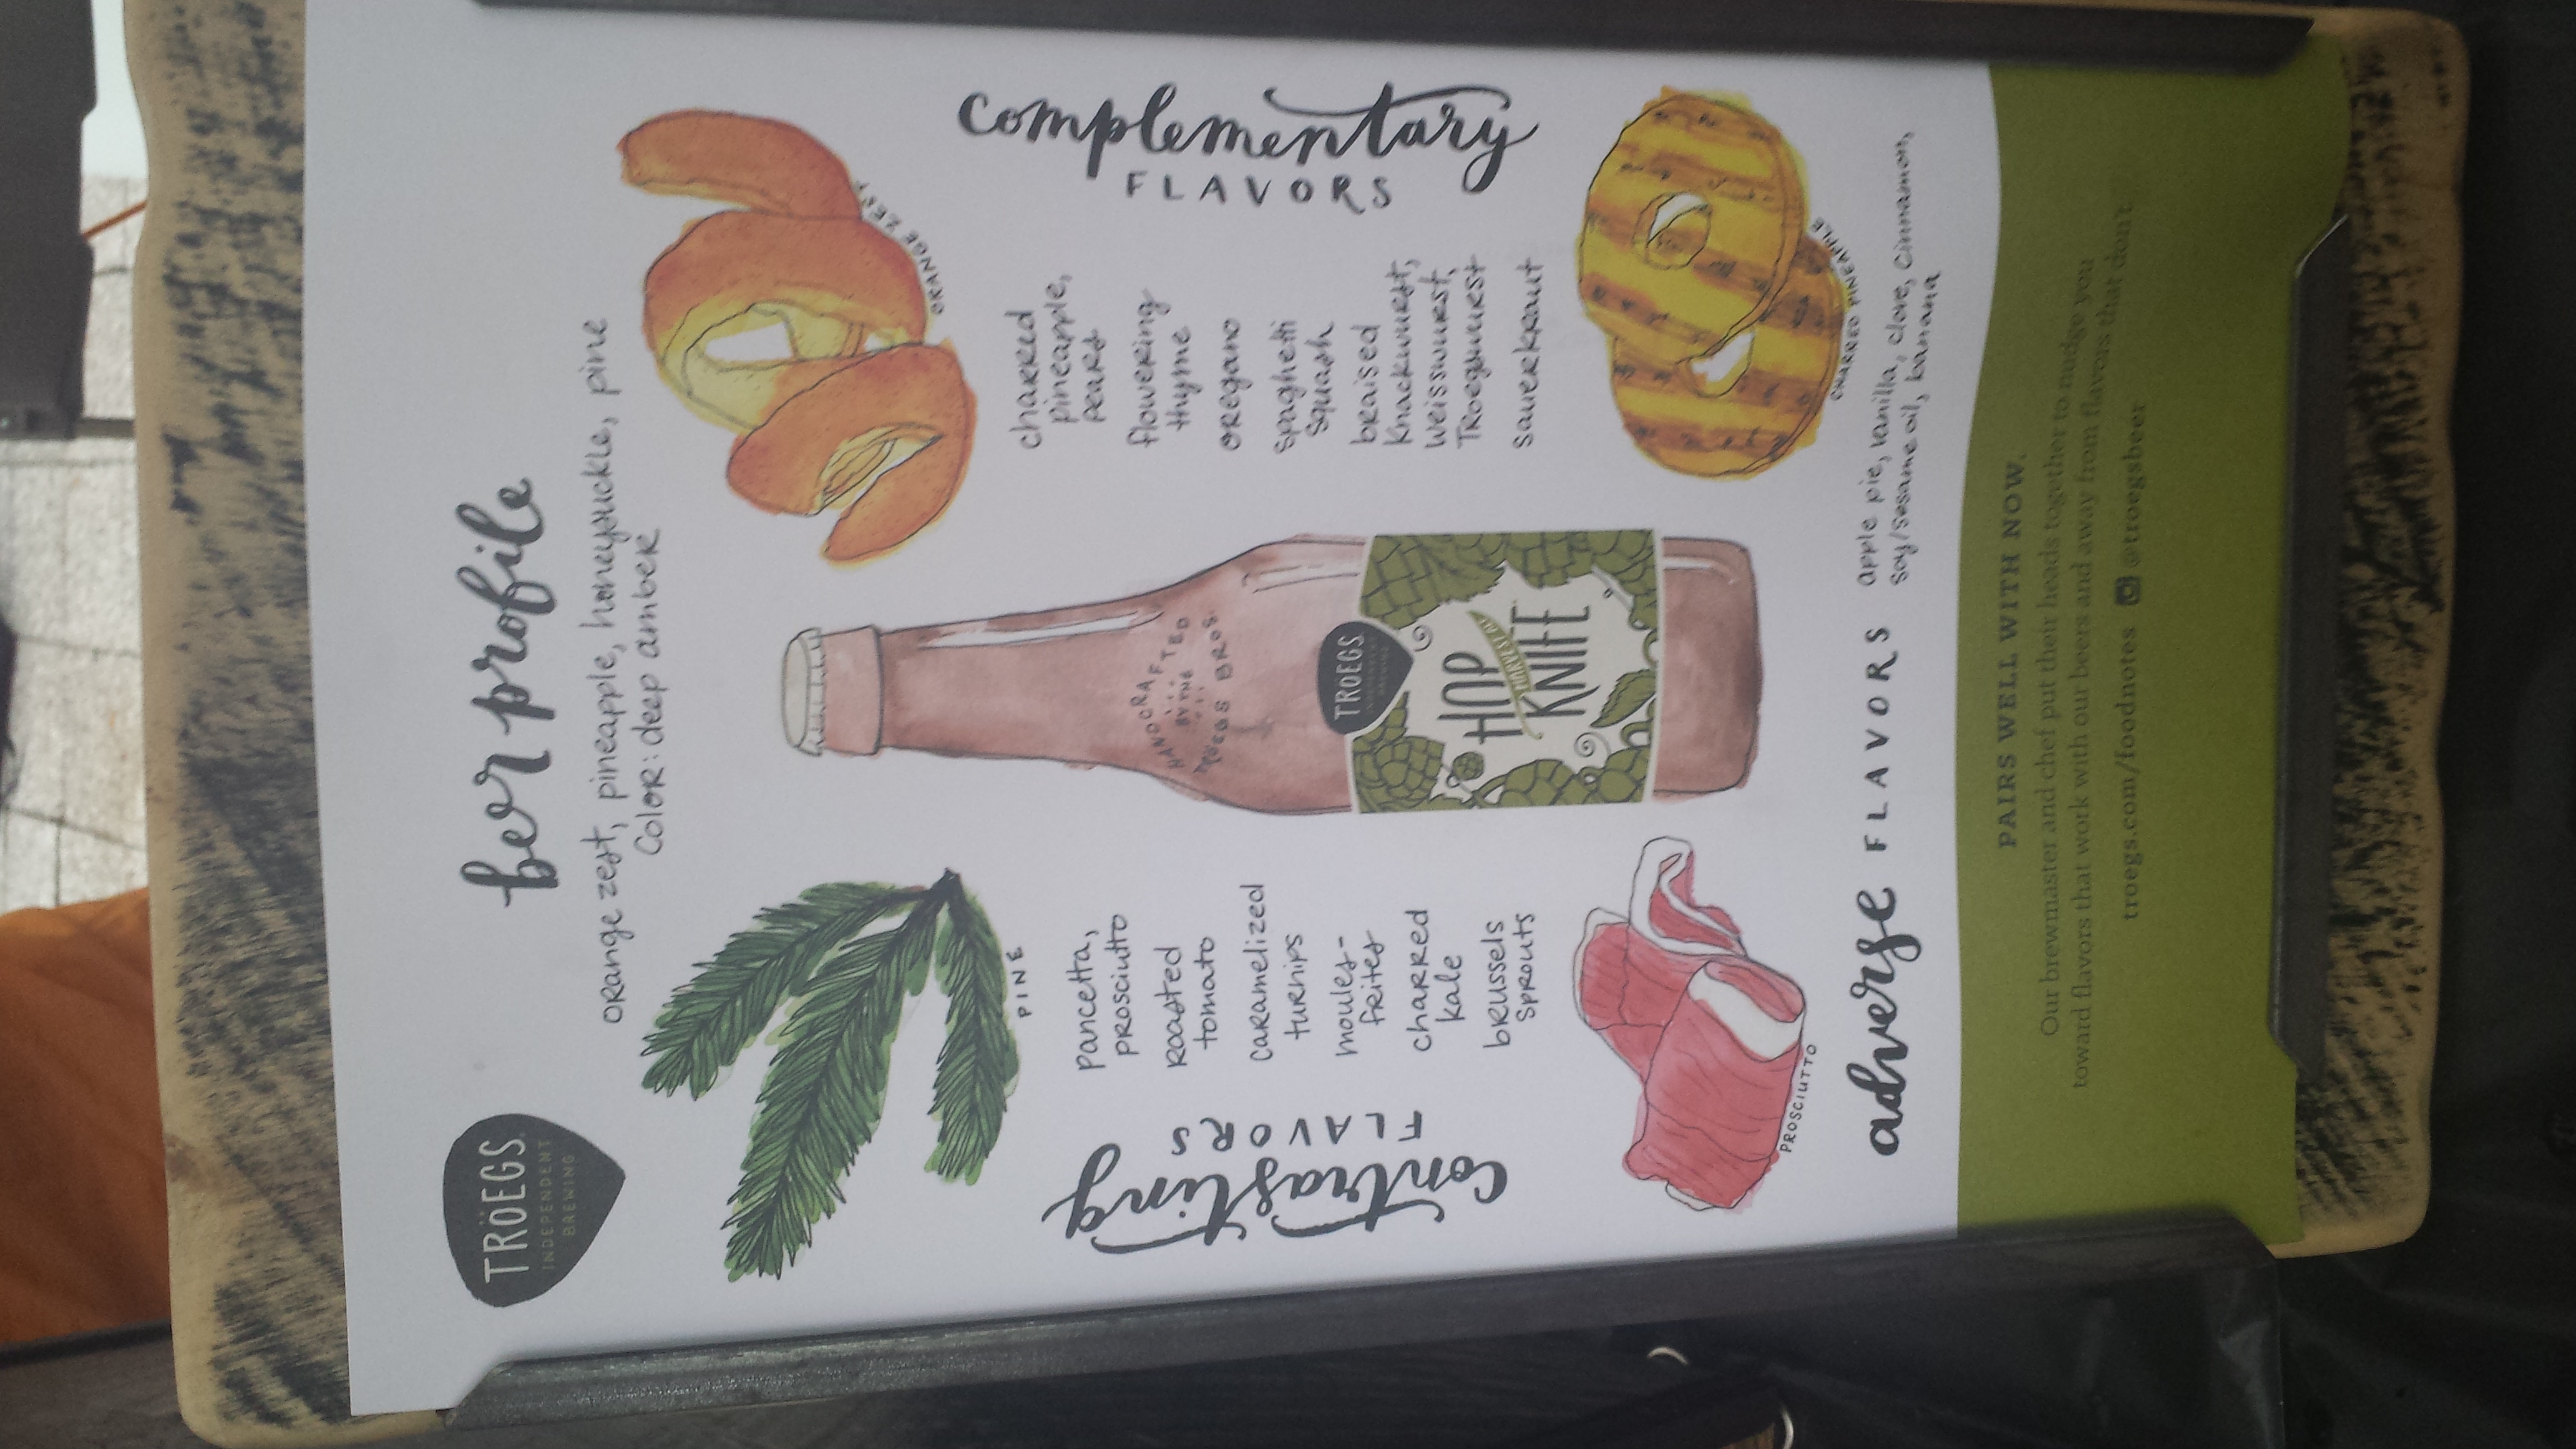 TRÖEGS
INDEPENDENT
BREWING
beer profile
orange zest, pineapple, honeysuckle, pine
Color: deep amber
PINE
ORANGE ZEST
contrasting
FLAVORS
pancetta,
prosciutto
roasted
tomato
caramelized
turnips
moules-
frites
charred
kale
brussels
sprouts
PROSCIUTTO
HANDCRAFTED
BY THE
TRÖEGS BROS.
TRÖEGS
INDEPENDENT
BREWING
HOP
HARVEST ALE
KNIFE
complementary
FLAVORS
charred
pineapple,
pears
flowering
thyme
oregano
spaghetti
squash
braised
knackwurst,
weisswurst,
Troegwurst
sauerkraut
CHARRED PINEAPPLE
adverse FLAVORS
apple pie, vanilla, clove, cinnamon,
soy/sesame oil, banana
PAIRS WELL WITH NOW.
Our brewmaster and chef put their heads together to nudge you
toward flavors that work with our beers and away from flavors that don't
troegs.com/foodnotes @troegsbeer